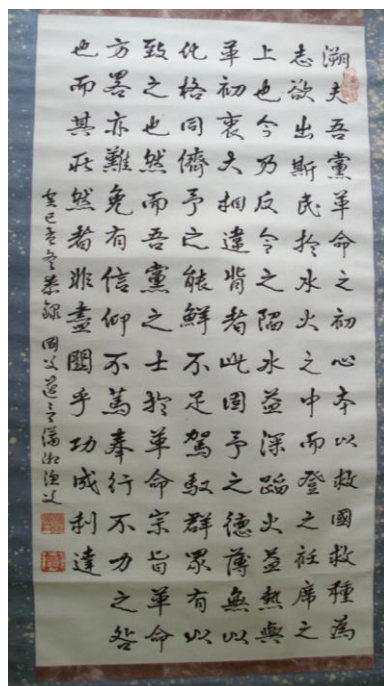 溯夫吾黨革命之初心本以救國救種為
志欲出斯民扵水火之中而登之衽席之
上也今乃反令之陷水益深蹈火益熱與
革初衷大相違背者此固予之德薄無以
化格同儕予之能鮮不足駕馭群眾有以
致之也然而吾黨之士扵革命宗旨革命
方畧亦難免有信仰不篤奉行不力之咎
也而其所然者非盡關乎功成利達
癸巳孟冬恭錄國父遺言瀟湘漁父